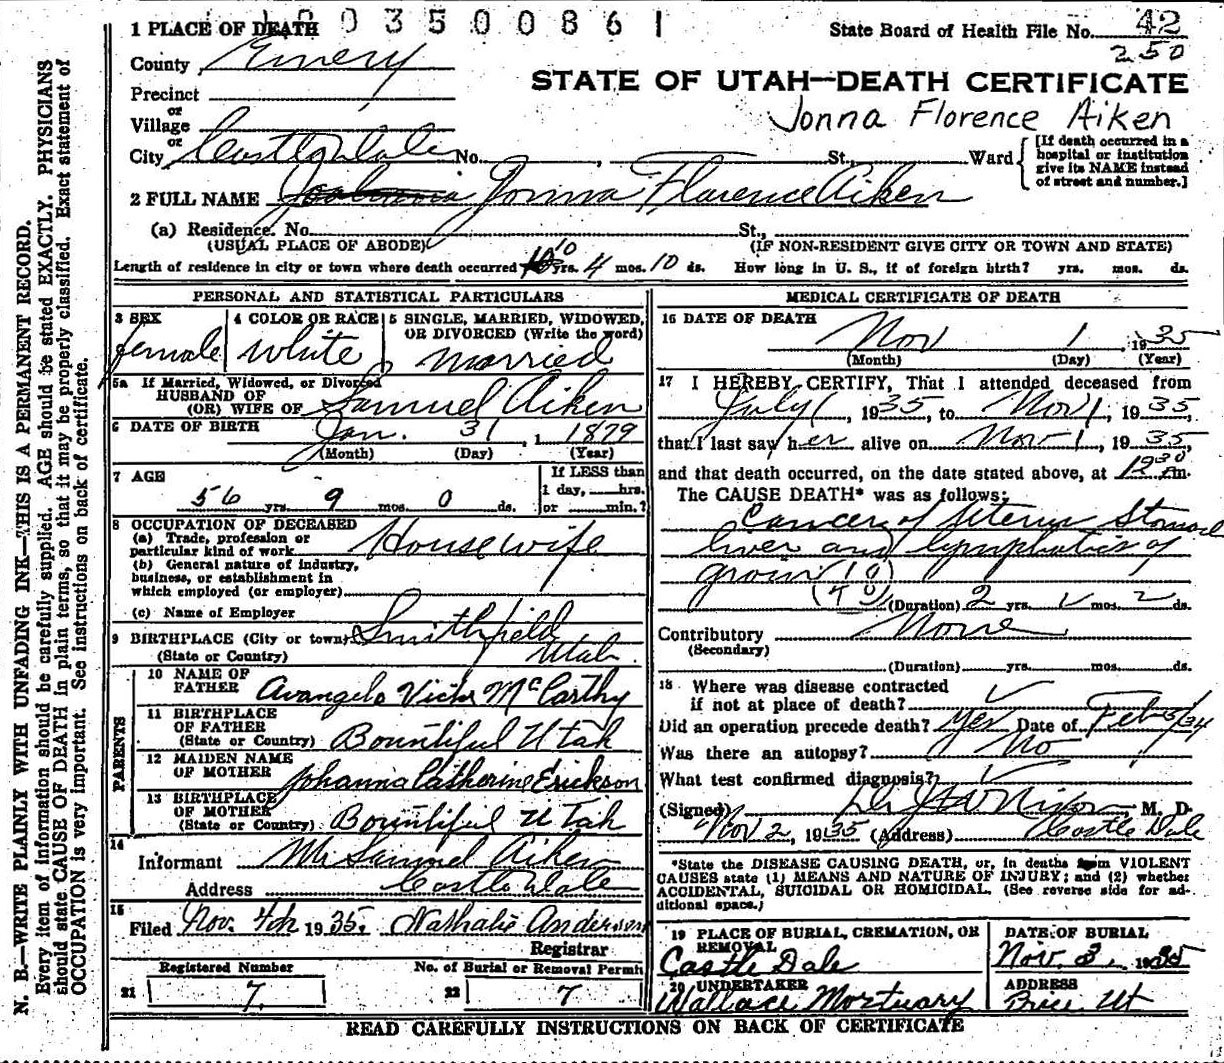 03500861
1 PLACE OF DEATH
State Board of Health File No. 42
250
County Emery
STATE OF UTAH—DEATH CERTIFICATE
Precinct
or
Village
Jonna Florence Aiken
or
City Castle Dale No. , St., Ward
[If death occurred in a
hospital or institution
give its NAME instead
of street and number.]
2 FULL NAME Jonna Florence Aiken
(a) Residence. No. St.,
(USUAL PLACE OF ABODE) (IF NON-RESIDENT GIVE CITY OR TOWN AND STATE)
Length of residence in city or town where death occurred 10 yrs. 4 mos. 10 ds. How long in U. S., if of foreign birth? yrs. mos. ds.
PERSONAL AND STATISTICAL PARTICULARS
3 SEX
female
4 COLOR OR RACE
white
5 SINGLE, MARRIED, WIDOWED,
OR DIVORCED (Write the word)
married
5a If Married, Widowed, or Divorced
HUSBAND OF
(OR) WIFE OF Samuel Aiken
6 DATE OF BIRTH Jan. 31, 1879
(Month) (Day) (Year)
7 AGE
56 yrs. 9 mos. 0 ds.
If LESS than
1 day, hrs.
or min.?
8 OCCUPATION OF DECEASED
(a) Trade, profession or
particular kind of work Housewife
(b) General nature of industry,
business, or establishment in
which employed (or employer)
(c) Name of Employer
9 BIRTHPLACE (City or town) Smithfield
(State or Country) Utah
PARENTS
10 NAME OF
FATHER Avangelo Victor McCarthy
11 BIRTHPLACE
OF FATHER
(State or Country) Bountiful Utah
12 MAIDEN NAME
OF MOTHER Johanna Catherine Erickson
13 BIRTHPLACE
OF MOTHER
(State or Country) Bountiful Utah
14
Informant Mr Samuel Aiken
Address Castle Dale
15
Filed Nov. 4th 1935. Nathalie Anderson
Registrar
Registered Number
21 7.
No. of Burial or Removal Permit
22 7
MEDICAL CERTIFICATE OF DEATH
16 DATE OF DEATH
Nov 1, 1935
(Month) (Day) (Year)
17 I HEREBY CERTIFY, That I attended deceased from
July 1, 1935, to Nov 1, 1935,
that I last saw her alive on Nov 1, 1935,
and that death occurred, on the date stated above, at 1230 Am.
The CAUSE DEATH* was as follows:
Cancer of Uterus Stomach
liver and lymphatics of
groin (10)
(Duration) 2 yrs. 1 mos. 2 ds.
Contributory None
(Secondary)
(Duration) yrs. mos. ds.
18 Where was disease contracted
if not at place of death?
Did an operation precede death? yes Date of Feb 3/34
Was there an autopsy? No
What test confirmed diagnosis?
(Signed) Nixon, M. D.
Nov 2, 1935 (Address) Castle Dale
*State the DISEASE CAUSING DEATH, or, in deaths from VIOLENT
CAUSES state (1) MEANS AND NATURE OF INJURY; and (2) whether
ACCIDENTAL, SUICIDAL OR HOMICIDAL. (See reverse side for ad-
ditional space.)
19 PLACE OF BURIAL, CREMATION, OR
REMOVAL
Castle Dale
DATE OF BURIAL
Nov. 3, 1935
20 UNDERTAKER
Wallace Mortuary
ADDRESS
Price Ut
READ CAREFULLY INSTRUCTIONS ON BACK OF CERTIFICATE
N. B.—WRITE PLAINLY WITH UNFADING INK—THIS IS A PERMANENT RECORD.
Every item of information should be carefully supplied. AGE should be stated EXACTLY. PHYSICIANS
should state CAUSE OF DEATH in plain terms, so that it may be properly classified. Exact statement of
OCCUPATION is very important. See instructions on back of certificate.